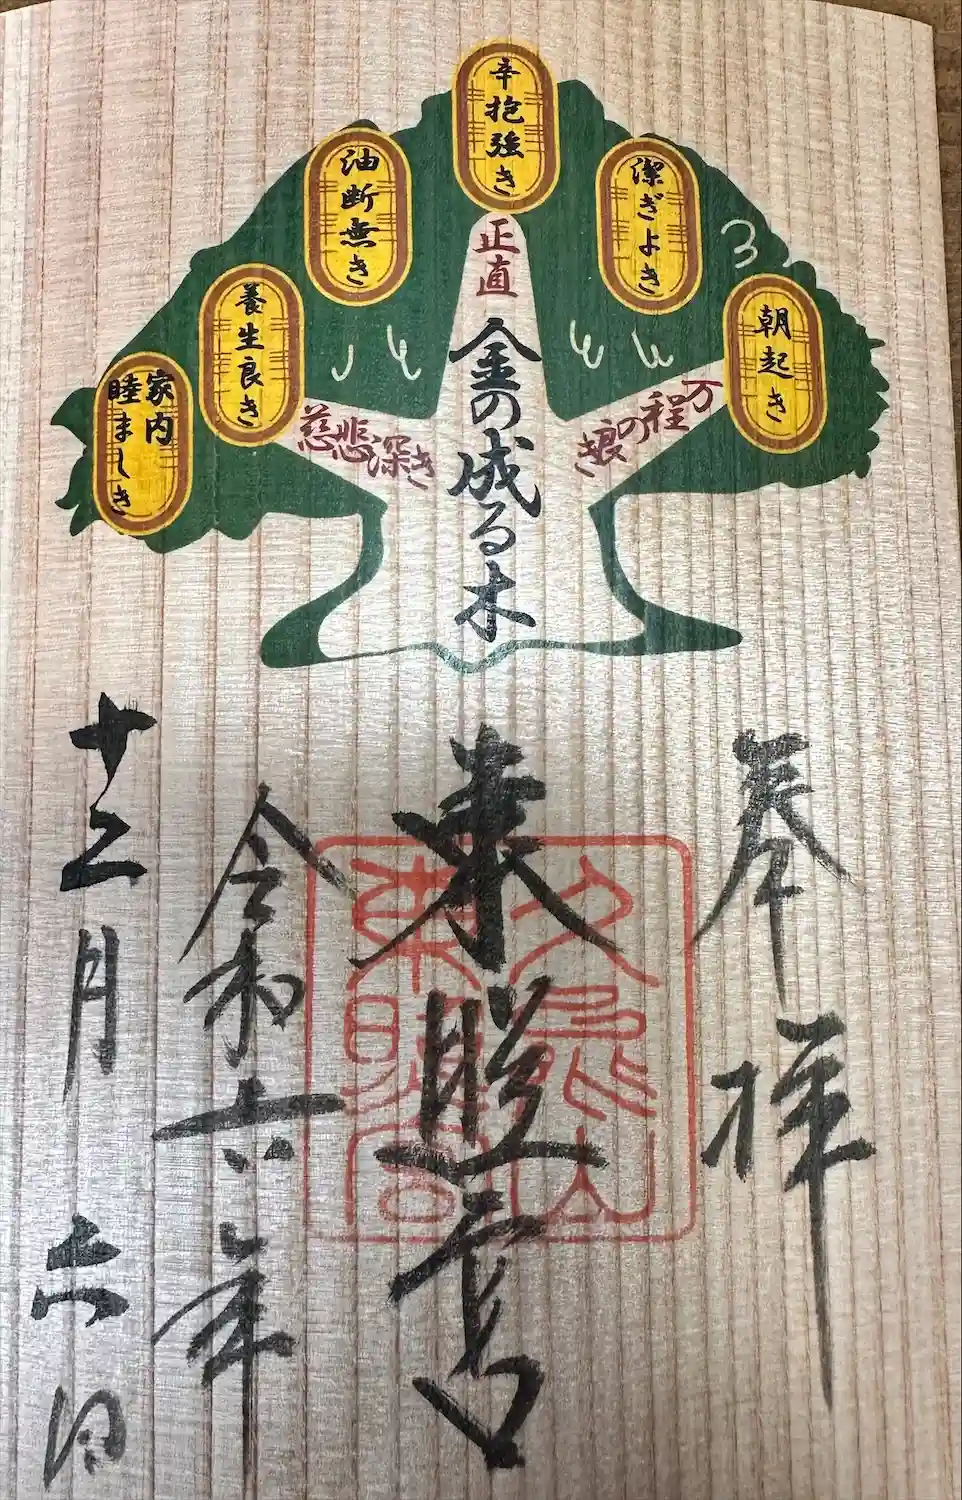 朝起き
潔ぎよき
辛抱強き
油断無き
養生良き
家内
睦ましき
万程の
正直
慈悲深き
金の成る木
奉拝
東照宮
令和六年
十二月六日
久能山
東照宮